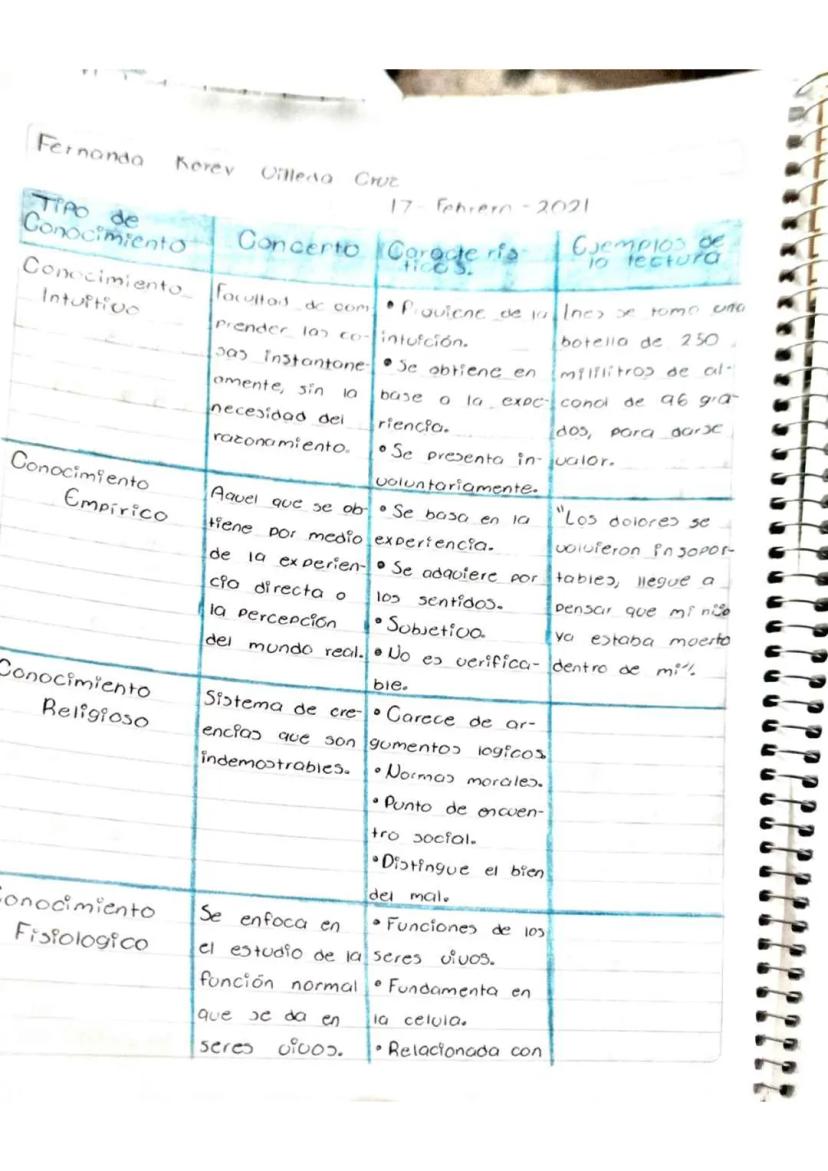 Fernanda Korev Villeda Cruz
17 - Febrero - 2021
Tipo de
Conocimiento
Concepto
Caracterís-
ticas.
Ejemplos de
la lectura
Conocimiento
Intuitivo
Facultad de com
prender las co-
sas instantane-
amente, sin la
necesidad del
razonamiento.
• Proviene de la
intuición.
• Se obtiene en
base a la expe-
riencia.
• Se presenta in-
voluntariamente.
Ines se tomo una
botella de 250
mililitros de al-
cohol de 96 gra-
dos, para darse
valor.
Conocimiento
Empírico
Aquel que se ob-
tiene por medio
de la experien-
cia directa o
la percepción
del mundo real.
• Se basa en la
experiencia.
• Se adquiere por
los sentidos.
• Subjetivo.
• No es verifica-
ble.
"Los dolores se
volvieron insopor-
tables, llegue a
pensar que mi niño
ya estaba muerto
dentro de mi".
Conocimiento
Religioso
Sistema de cre-
encias que son
indemostrables.
• Carece de ar-
gumentos logicos
• Normas morales.
• Punto de encuen-
tro social.
• Distingue el bien
del mal.
Conocimiento
Fisiologico
Se enfoca en
el estudio de la
función normal
que se da en
seres vivos.
• Funciones de los
seres vivos.
• Fundamenta en
la celula.
• Relacionada con